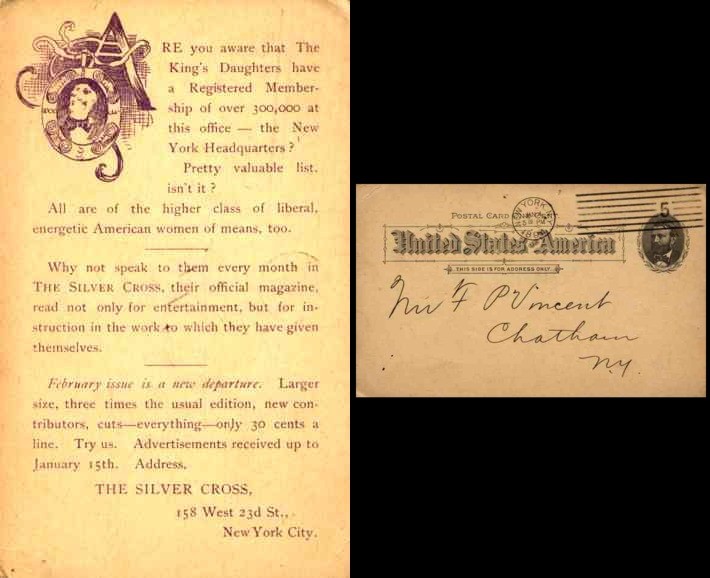 ARE you aware that The
King's Daughters have
a Registered Member-
ship of over 300,000 at
this office — the New
York Headquarters?
Pretty valuable list.
isn't it?
All are of the higher class of liberal,
energetic American women of means, too.
Why not speak to them every month in
THE SILVER CROSS, their official magazine,
read not only for entertainment, but for in-
struction in the work to which they have given
themselves.
February issue is a new departure. Larger
size, three times the usual edition, new con-
tributors, cuts—everything—only 30 cents a
line. Try us. Advertisements received up to
January 15th. Address,
THE SILVER CROSS,
158 West 23d St.,
New York City.
POSTAL CARD
NEW YORK
5
United States of America
THIS SIDE IS FOR ADDRESS ONLY.
Mr F P Vincent
Chatham
N.Y.